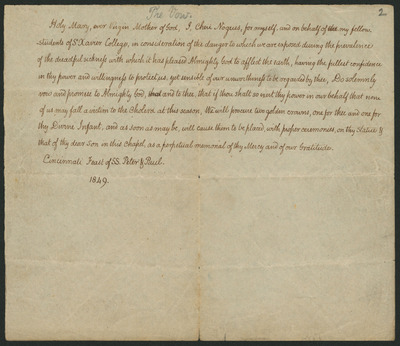 The Vow.
2
Holy Mary, ever Virgin Mother of God, I, Chas Nogues, for myself, and on behalf of the my fellow
students of St Xavier College, in consideration of the danger to which we are exposed during the prevalence
of the dreadful sickness with which it has pleased Almighty God to afflict the earth, having the fullest confidence
in thy power and willingness to protect us, yet sensible of our unworthiness to be regarded by thee, Do solemnly
vow and promise to Almighty God, and to thee, that if thou shalt so exert thy power in our behalf that none
of us may fall a victim to the Cholera at this season, We will procure two golden crowns, one for thee and one for
thy Divine Infant, and as soon as may be, will cause them to be placed, with proper ceremonies, on thy statue &
that of thy dear Son in this chapel, as a perpetual memorial of thy Mercy and of our Gratitude.
Cincinnati Feast of SS. Peter & Paul.
1849.